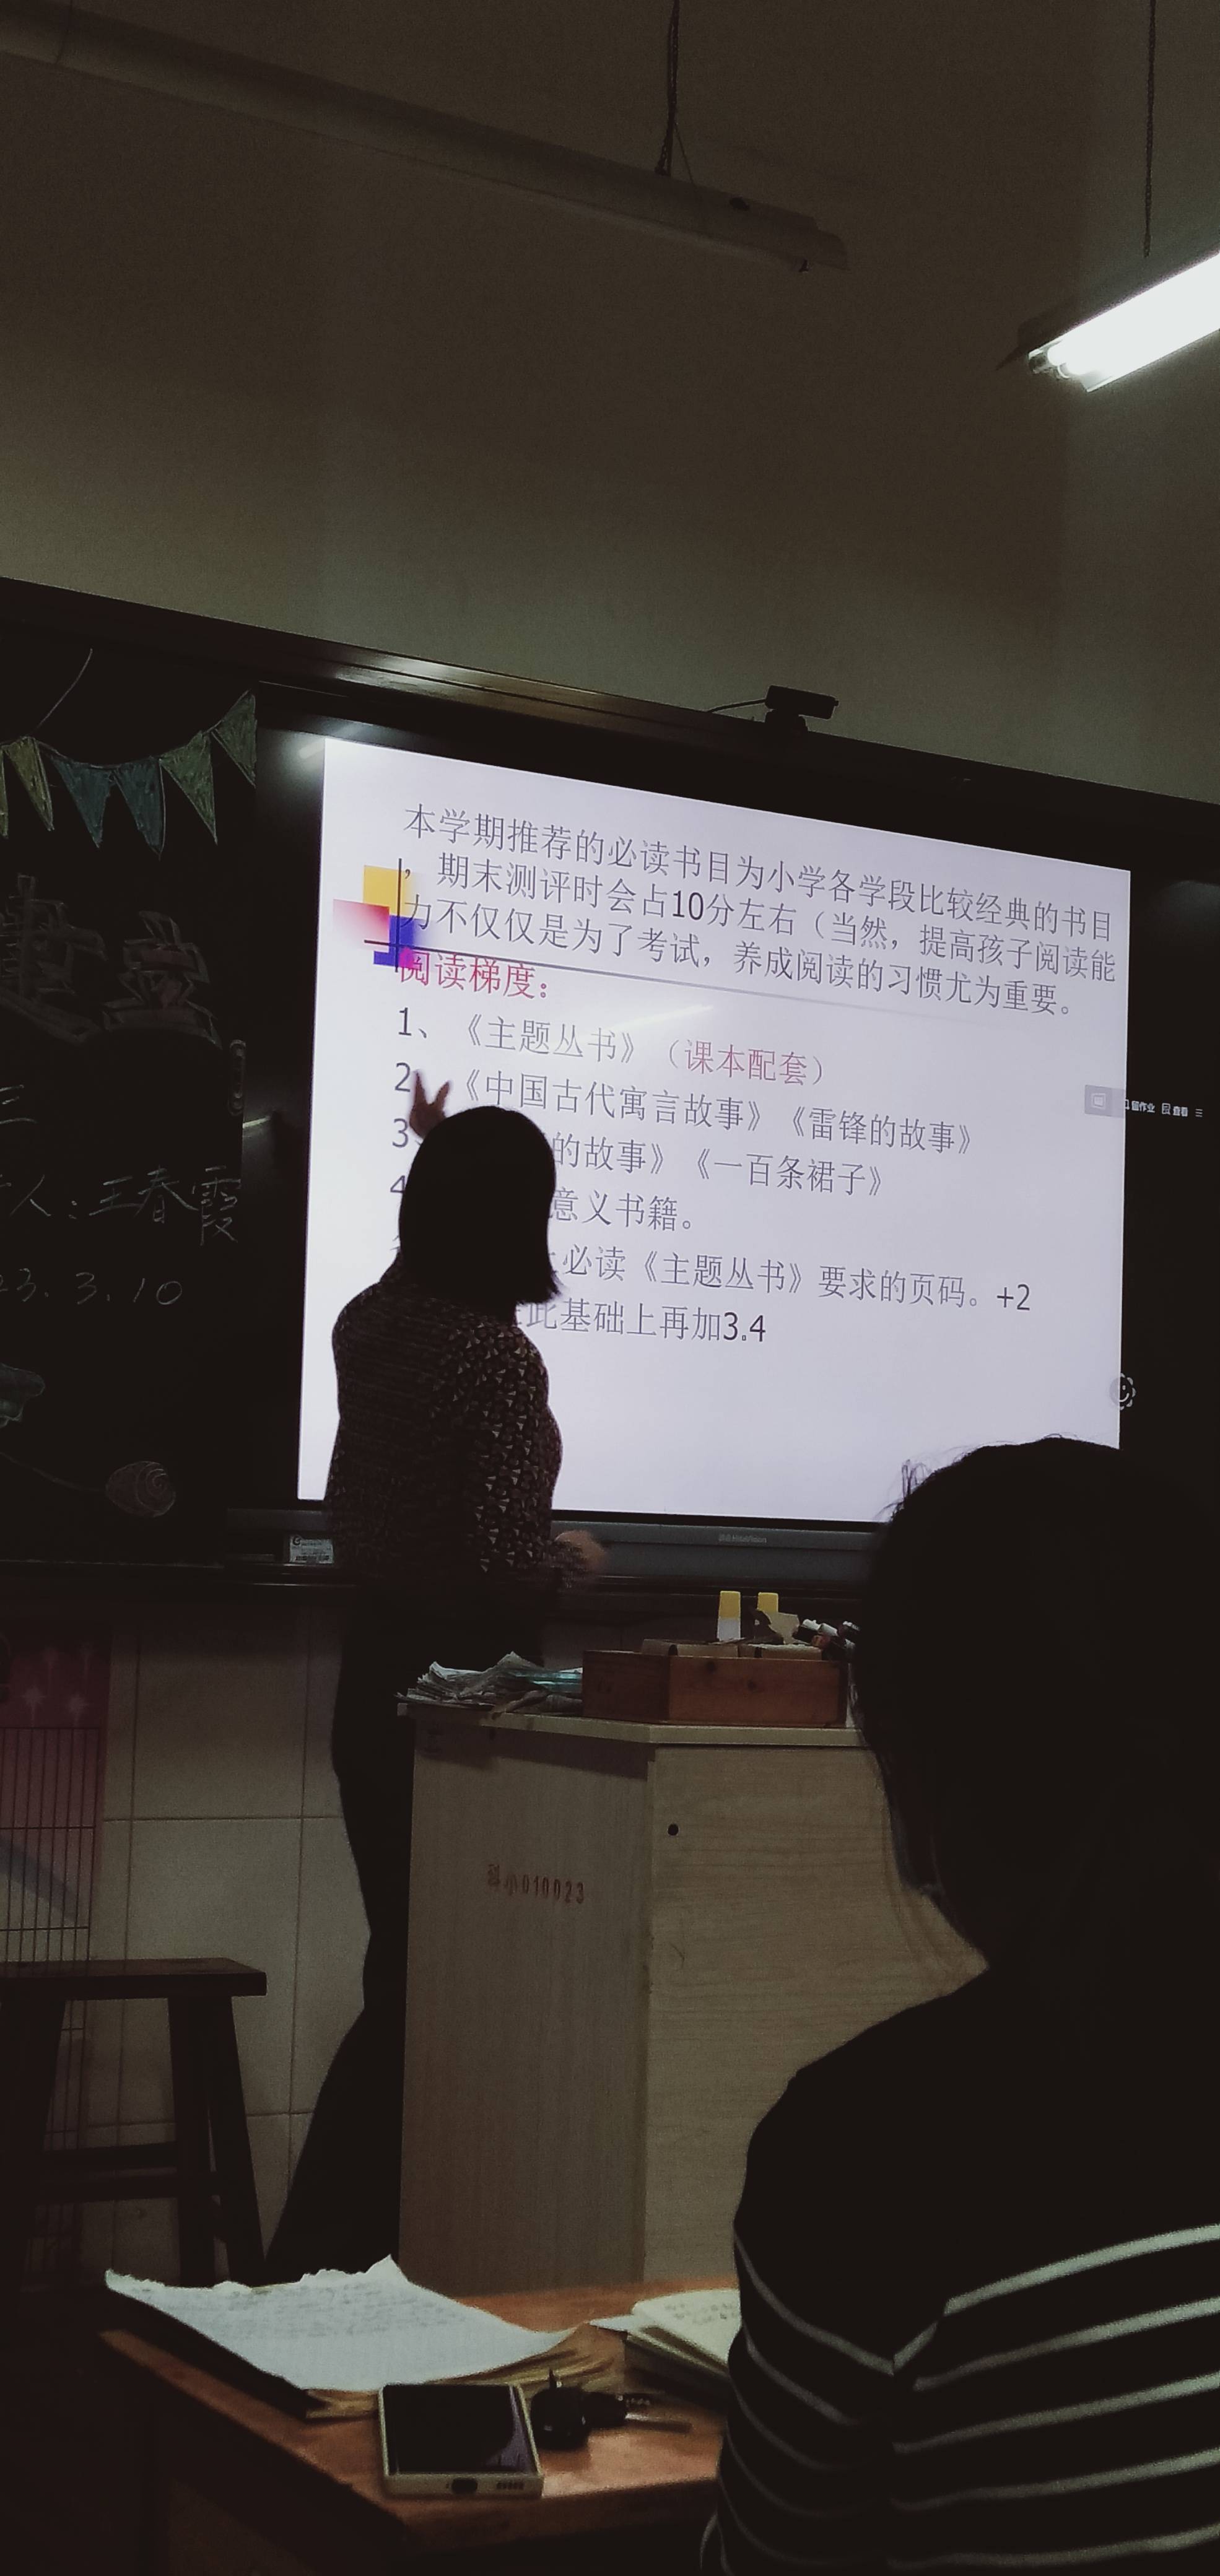 本学期推荐的必读书目为小学各学段比较经典的书目
，期末测评时会占10分左右（当然，提高孩子阅读能
力不仅仅是为了考试，养成阅读的习惯尤为重要。
阅读梯度：
1、《主题丛书》（课本配套）
2 《中国古代寓言故事》《雷锋的故事》
3 的故事》《一百条裙子》
4 意义书籍。
必读《主题丛书》要求的页码。+2
此基础上再加3.4
留作业 查看
人：王春霞
23.3.10
小010023